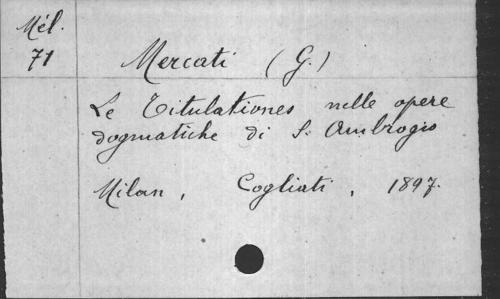 Mél.
71
Mercati (G.)
Le Titulationes nelle opere
dogmatiche di S. Ambrogio
Milan, Cogliati, 1897.